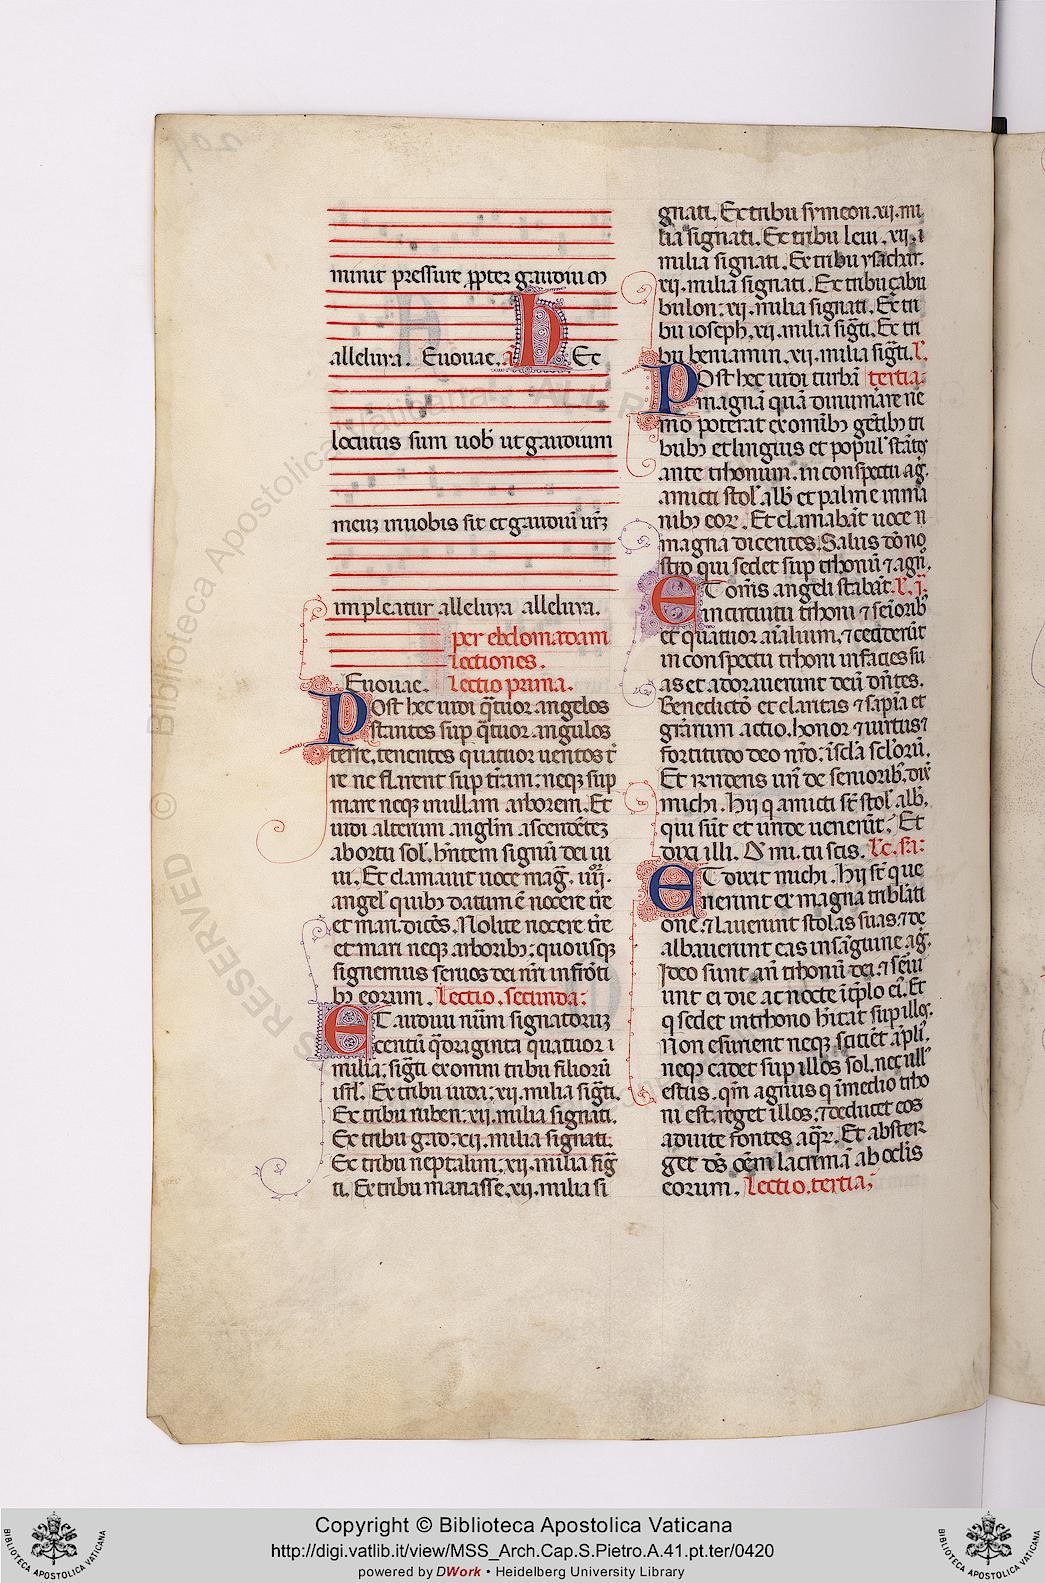 minit pressure ꝓpter gaudium
alleluya. Euouae. a Hec
locutus sum uob̄ ut gaudium
meuʒ in uobis sit et gaudiū ur̄ʒ
impleatur alleluya alleluya.
per ebdomadam
lectiones.
Euouae. Lectio prima.
Post hec uidi q̄tuor angelos
stantes suꝑ q̄tuor angulos
terre, tenentes quatuor uentos t̄
re ne flarent suꝑ tr̄am. neqꝫ suꝑ
mare neqꝫ in ullam arborem. Et
uidi alterum angl̄m ascendēteʒ
ab ortu sol̄. hn̄tem signū dei ui
ui. Et clamauit uoce maḡ. iiii.
angel̄ quibꝫ datum ē nocere tr̄e
et mari dicēs. Nolite nocere tr̄e
et mari neqꝫ arboribꝫ. quousqꝫ
signemus seruos dei nr̄i in frōti
bꝫ eorum. Lectio. secunda:
ET audiui nūm signatoruʒ
centū q̄draginta quatuor i
milia. sig̅ti ex omni tribu filiorū
isrl̄. Ex tribu iuda. xij. milia sig̅ti.
Ex tribu ruben. xij. milia signati.
Ex tribu gad. xij. milia signati.
Ex tribu neptalim. xij. milia sig̅
ti. Ex tribu manasse. xij. milia si
gnati. Ex tribu symeon. xij. mi
lia signati. Ex tribu leui. xij. i
milia signati. Ex tribu ysachar.
xij. milia signati. Ex tribu çabu
bulon. xij. milia signati. Ex tri
bu ioseph. xij. milia sig̅ti. Ex tri
bu beniamin. xij. milia sig̅ti. l̄.
Post hec uidi turbā tertia.
magnā quā dinumare ne
mo poterat ex omībꝫ gētibꝫ tri
bubꝫ et linguis et popul̄ stātes
ante thronum. in conspectu ag̅.
amicti stol̄ alb̄ et palme in ma
nibꝫ eoꝝ. Et clamabāt uoce
magna dicentes. Salus dō nō
stro qui sedet suꝑ thronū ⁊ agn̄.
ET om̄s angeli stabāt l̄. j̄.
in circuitu throni ⁊ seniorib̄
et quatuor aīalium. ⁊ ceciderūt
in conspectu throni in facies su
as et adorauerunt deū dn̄tes.
Benedictō et claritas ⁊ sapīa et
gr̄arum actio. honor ⁊ uirtus ⁊
fortitudo deo nr̄o. ī scl̄a scl̄orū.
Et rn̄dens un̄ de seniorib̄. dix̄
michi. Hij q amicti st̄ stol̄ alb̄.
qui sūt et unde uenerūt. Et
dixi illi. Dn̄ mi. tu scis. Lc̄. s̄a:
ET dixit michi. Hij st̄ q̄ ue
nerunt ex magna tribl̄ati
one. ⁊ lauerunt stolas suas. ⁊ de
albauerunt eas in sāguine ag̅.
Ideo sunt an̄ thronū dei. ⁊ s̄eru
iunt ei die ac nocte ī tēplo eī. Et
q sedet in throno hītat suꝑ illos.
Non esurient neqꝫ scitiēt āpli.
neqꝫ cadet suꝑ illos sol. nec ull̄
estus. qm̄ agnus q ī medio thro
ni est. reget illos. ⁊ deducet eos
ad uite fontes aq̄ꝝ. Et abster
get dō̄s oēm lacrimā ab ocl̄is
eorum. Lectio. tertia.
Copyright © Biblioteca Apostolica Vaticana
http://digi.vatlib.it/view/MSS_Arch.Cap.S.Pietro.A.41.pt.ter/0420
powered by DWork • Heidelberg University Library
BIBLIOTECA APOSTOLICA VATICANA
BIBLIOTECA APOSTOLICA VATICANA